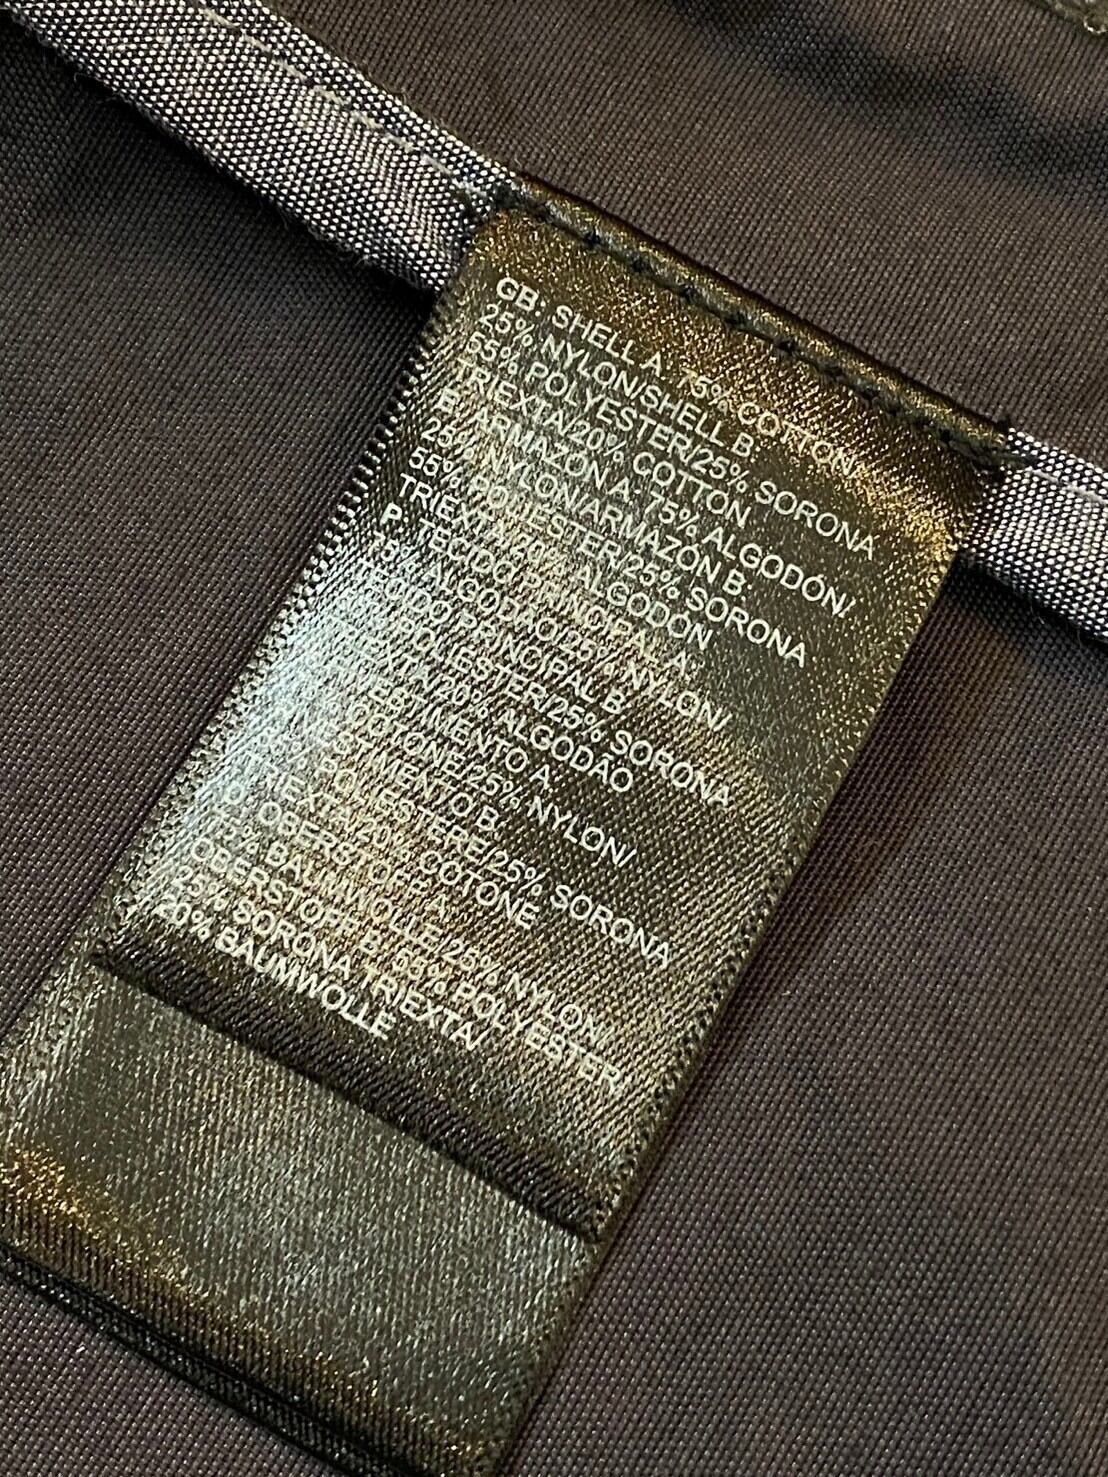 GB: SHELL A: 75% COTTON/
25% NYLON/SHELL B:
55% POLYESTER/25% SORONA
TRIEXTA/20% COTTON
E: ARMAZÓN A: 75% ALGODÓN/
25% NYLON/ARMAZÓN B:
55% POLIESTER/25% SORONA
TRIEXTA/20% ALGODÓN
P: TECIDO PRINCIPAL A:
75% ALGODÃO/25% NYLON/
TECIDO PRINCIPAL B:
POLIESTER/25% SORONA
TRIEXTA/20% ALGODÃO
RIVESTIMENTO A:
COTONE/25% NYLON/
RIVESTIMENTO B:
POLIESTERE/25% SORONA
TRIEXTA/20% COTONE
D: OBERSTOFF A:
75% BAUMWOLLE/25% NYLON/
OBERSTOFF B: 55% POLYESTER/
25% SORONA TRIEXTA/
20% BAUMWOLLE